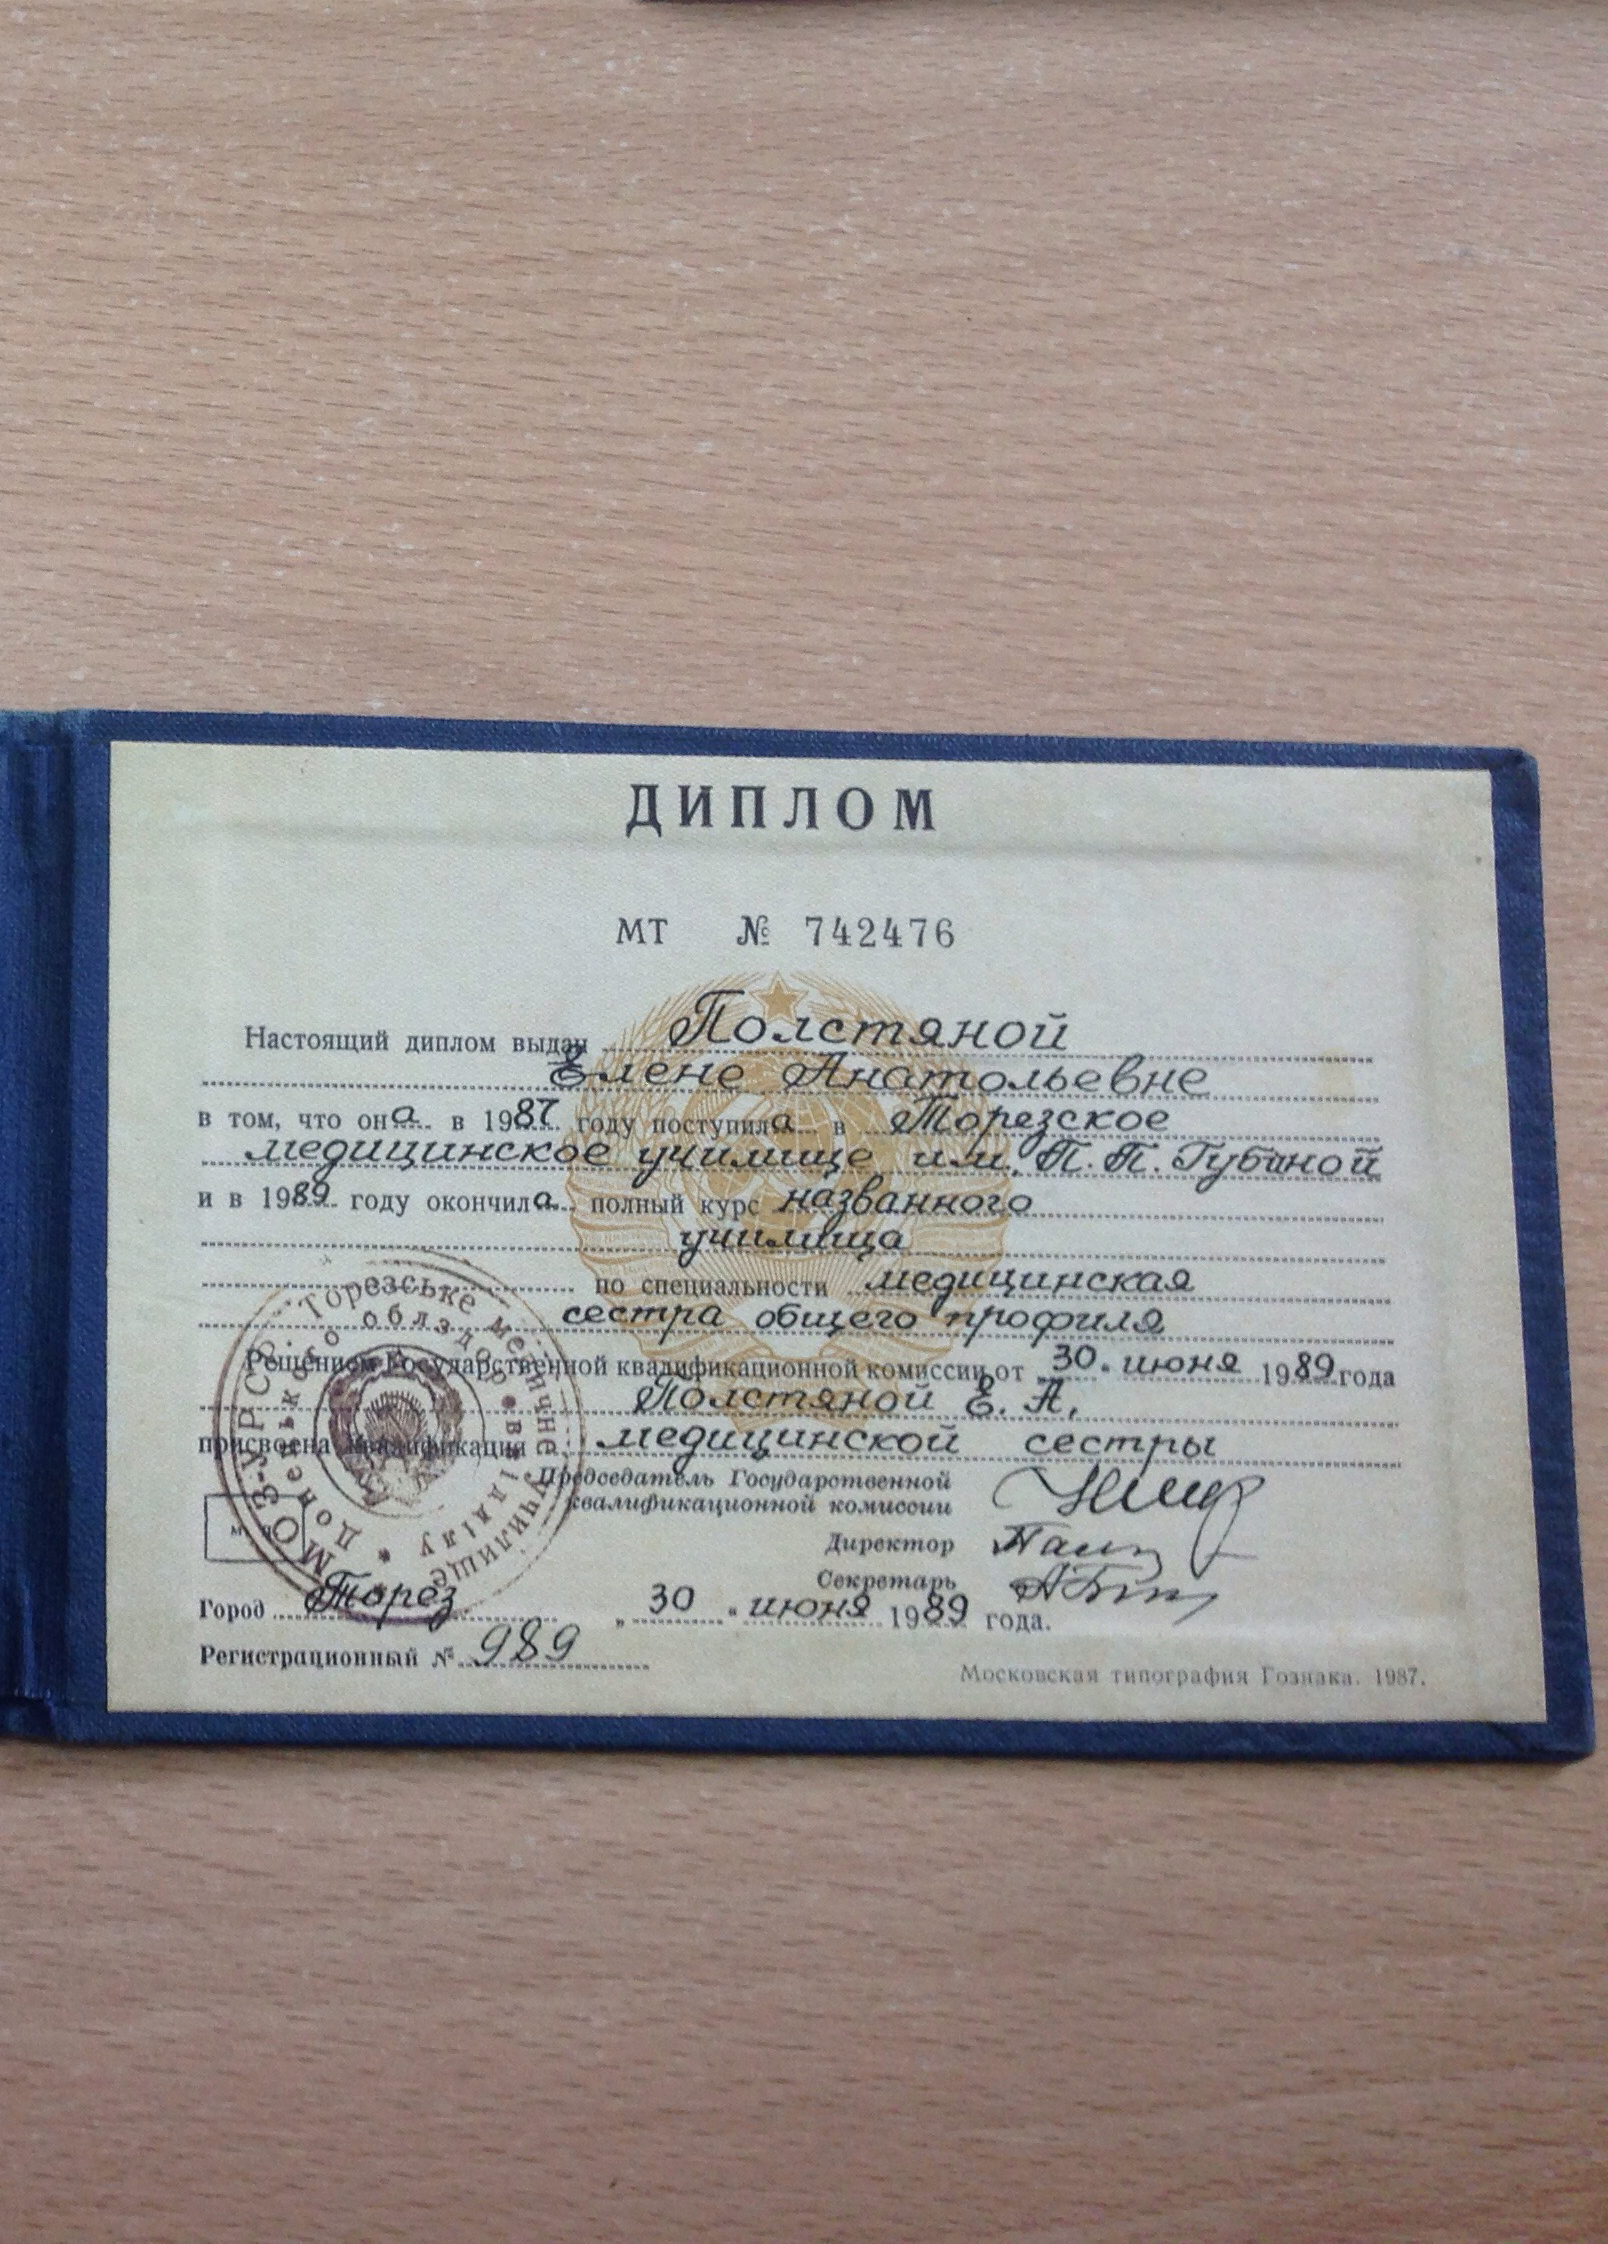 ДИПЛОМ
МТ № 742476
Настоящий диплом выдан Полстяной
Елене Анатольевне
в том, что она в 1987 году поступила в Торезское
медицинское училище им. П. П. Губиной
и в 1989 году окончила полный курс названного
училища
по специальности медицинская
сестра общего профиля
Решением Государственной квалификационной комиссии от 30 июня 1989 года
Полстяной Е. А.
присвоена квалификация медицинской сестры
Председатель Государственной
квалификационной комиссии
Директор
Секретарь
Город Торез „30“ июня 1989 года.
Регистрационный № 989
Московская типография Гознака. 1987.
МОЗ-УРСР. Торезське медичне училище
Донецького облздороввідділу